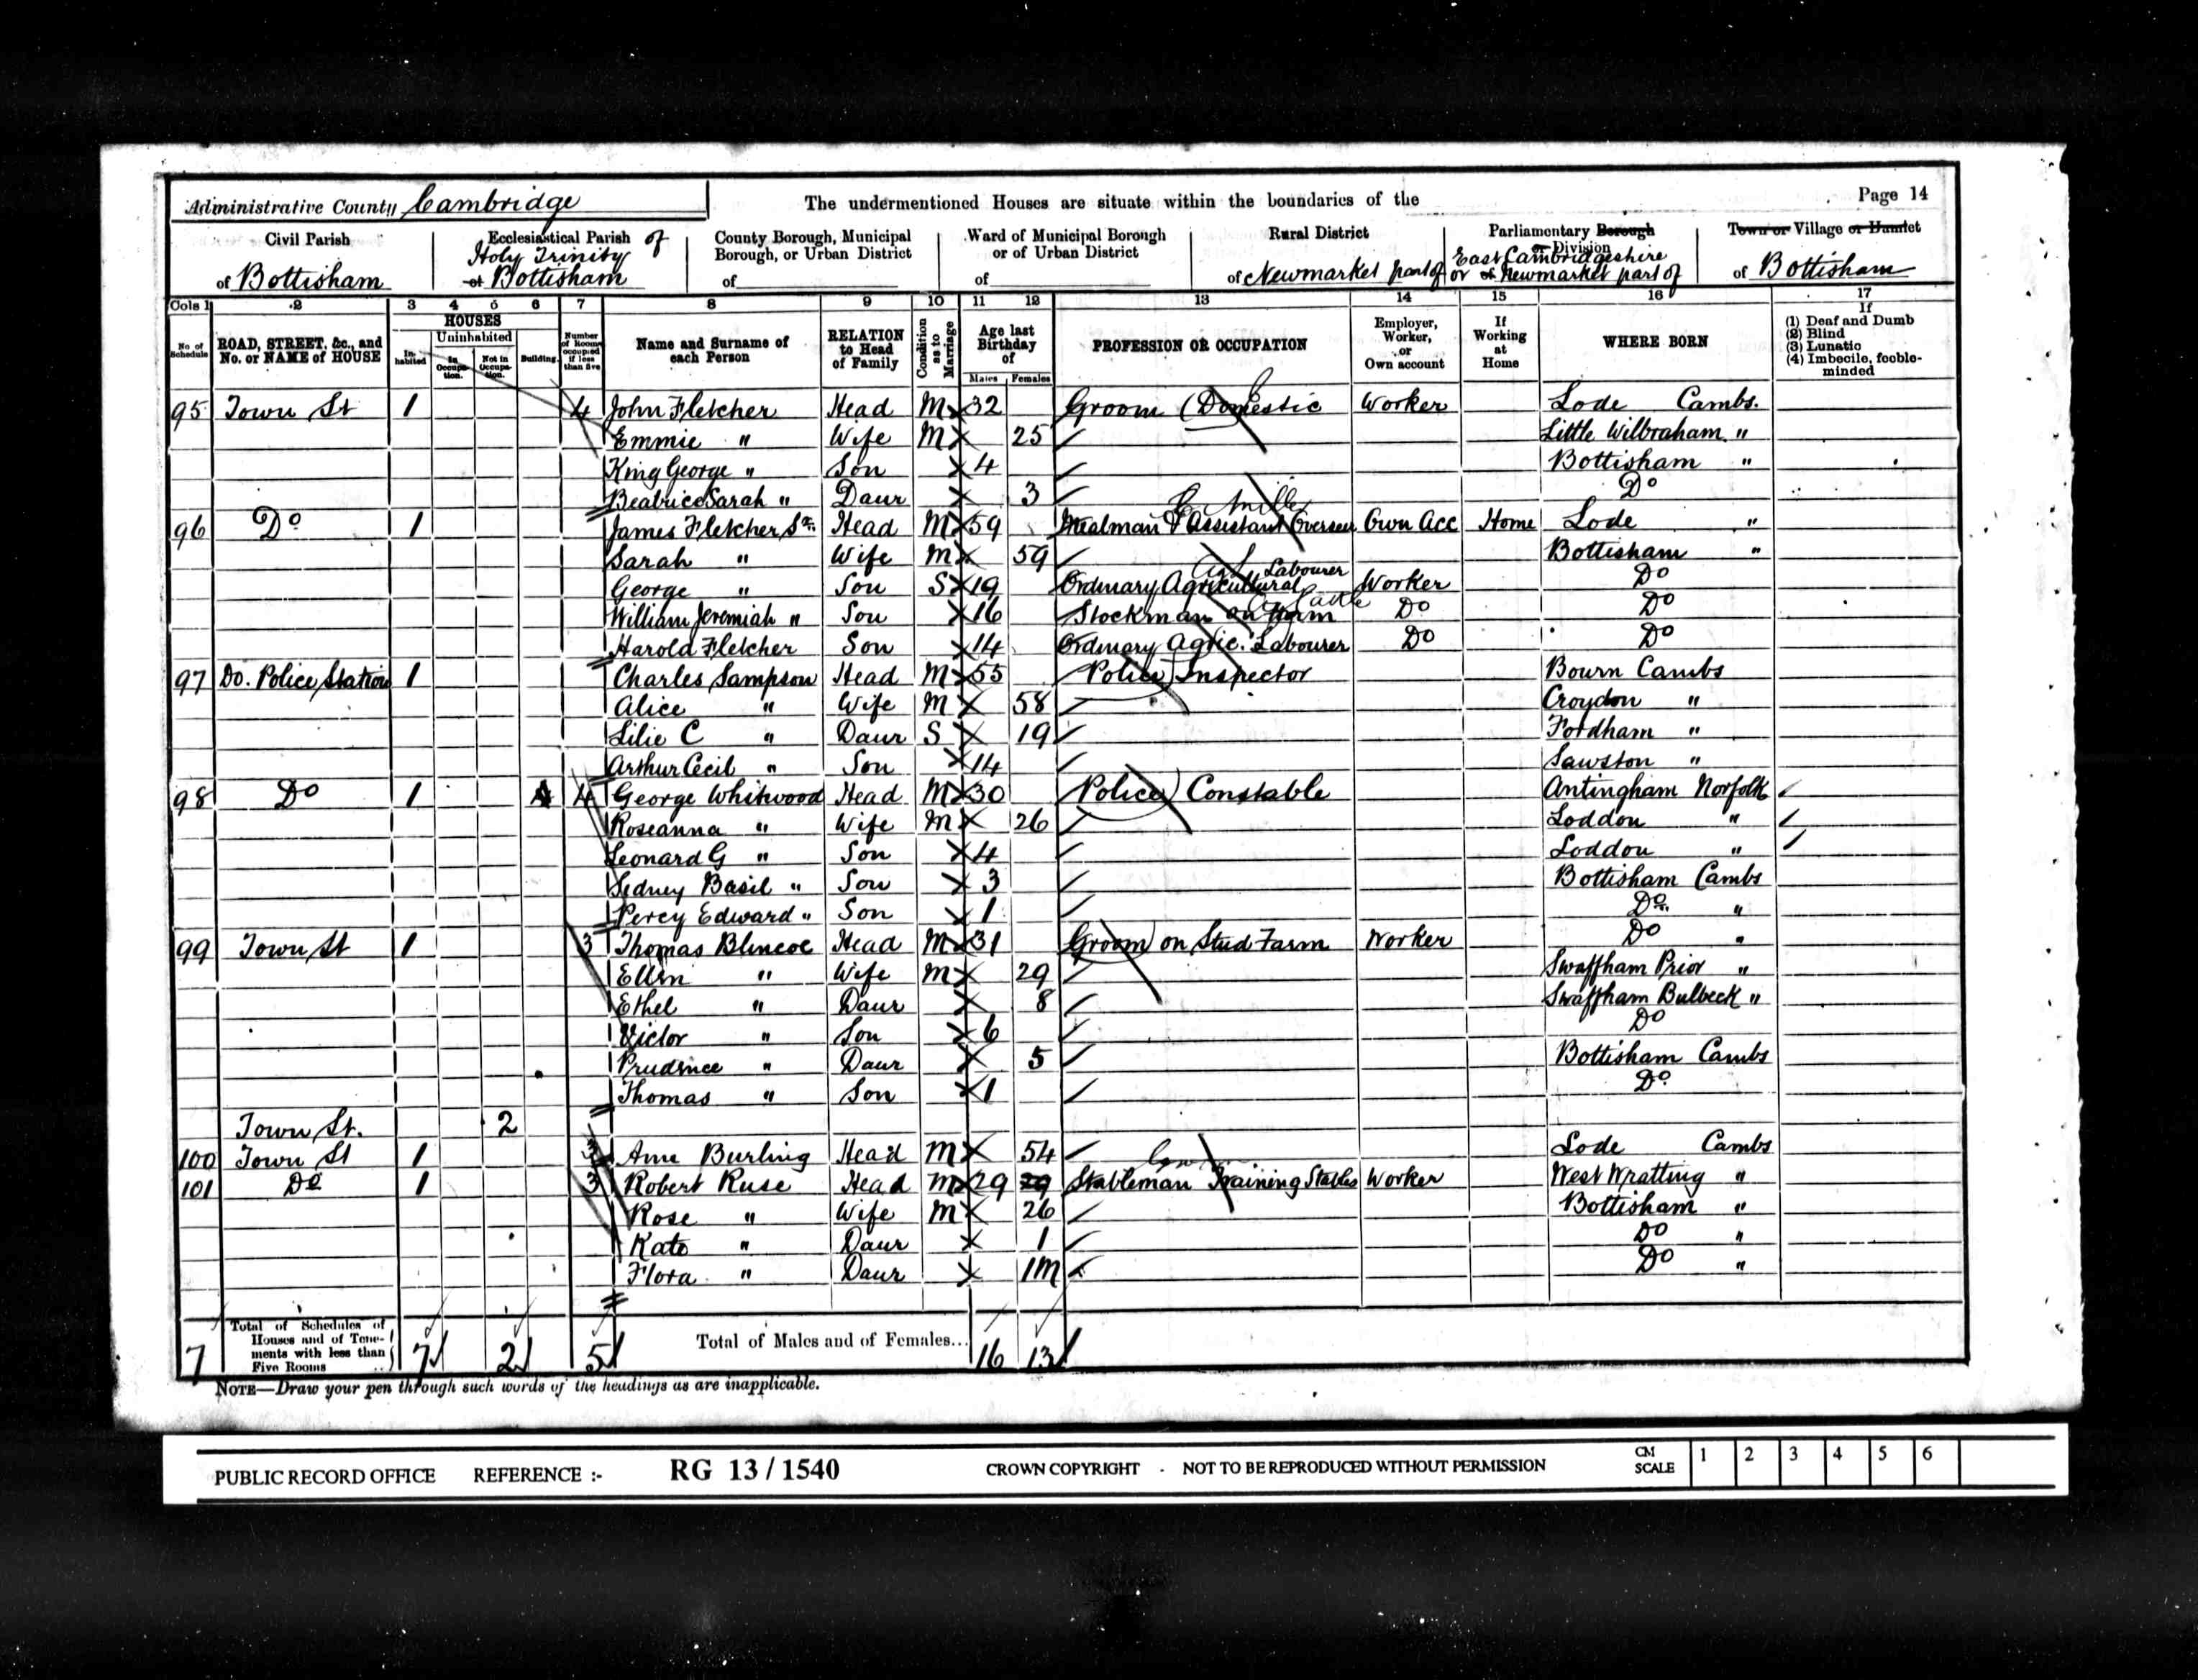 Administrative County Cambridge The undermentioned Houses are situate within the boundaries of the Page 14
Civil Parish of Bottisham
Ecclesiastical Parish of Holy Trinity of Bottisham
County Borough, Municipal Borough, or Urban District of
Ward of Municipal Borough or of Urban District of
Rural District of Newmarket part of
Parliamentary Borough or Division of East Cambridgeshire or Newmarket part of
Town or Village or Hamlet of Bottisham
Cols 1 2 3 4 5 6 7 8 9 10 11 12 13 14 15 16 17
No. of Schedule
ROAD, STREET, &c., and No. or NAME of HOUSE
HOUSES
Inhabited
Uninhabited
In Occupation.
Not in Occupation.
Building.
Number of Rooms occupied if less than five
Name and Surname of each Person
RELATION to Head of Family
Condition as to Marriage
Age last Birthday of
Males Females
PROFESSION OR OCCUPATION
Employer, Worker, or Own account
If Working at Home
WHERE BORN
If
(1) Deaf and Dumb
(2) Blind
(3) Lunatic
(4) Imbecile, feeble-minded
95 Town St 1 4 John Fletcher Head M 32 Groom (Domestic Worker Lode Cambs.
Emmie " Wife M 25 Little Wilbraham "
King George " Son 4 Bottisham "
Beatrice Sarah " Daur 3 Do
96 Do 1 James Fletcher Sr. Head M 59 Mealman & Assistant Overseer Own Acc Home Lode "
Sarah " Wife M 59 Bottisham "
George " Son S 19 Ordinary Agricultural Labourer Worker Do
William Jeremiah " Son 16 Stockman on Farm Do Do
Harold Fletcher Son 14 Ordinary Agric. Labourer Do Do
97 Do. Police Station 1 Charles Sampson Head M 55 Police Inspector Bourn Cambs
Alice " Wife M 58 Croydon "
Lilie C " Daur S 19 Fordham "
Arthur Cecil " Son 14 Sawston "
98 Do 1 4 George Whitwood Head M 30 Police Constable Antingham Norfolk
Roseanna " Wife M 26 Loddon "
Leonard G " Son 4 Loddon "
Sidney Basil " Son 3 Bottisham Cambs
Percy Edward " Son 1 Do. "
99 Town St 1 3 Thomas Blincoe Head M 31 Groom on Stud Farm Worker Do "
Ellen " Wife M 29 Swaffham Prior "
Ethel " Daur 8 Swaffham Bulbeck "
Victor " Son 6 Do
Prudence " Daur 5 Bottisham Cambs
Thomas " Son 1 Do
Town St. 2
100 Town St 1 3 Ann Burling Head M 54 Lode Cambs
101 Do 1 3 Robert Ruse Head M 29 29 Stableman Training Stables Worker West Wratting "
Rose " Wife M 26 Bottisham "
Kate " Daur 1 Do "
Flora " Daur 1M Do "
7 Total of Schedules of Houses and of Tenements with less than Five Rooms 7 2 5 Total of Males and of Females... 16 13
NOTE—Draw your pen through such words of the headings as are inapplicable.
PUBLIC RECORD OFFICE REFERENCE :- RG 13 / 1540 CROWN COPYRIGHT - NOT TO BE REPRODUCED WITHOUT PERMISSION CM SCALE 1 2 3 4 5 6